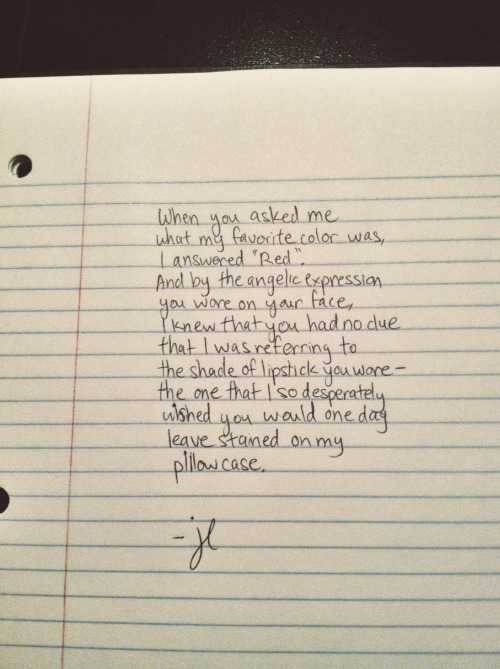 When you asked me
what my favorite color was,
I answered "Red".
And by the angelic expression
you wore on your face,
I knew that you had no clue
that I was referring to
the shade of lipstick you wore -
the one that I so desperately
wished you would one day
leave stained on my
pillowcase.
- jl